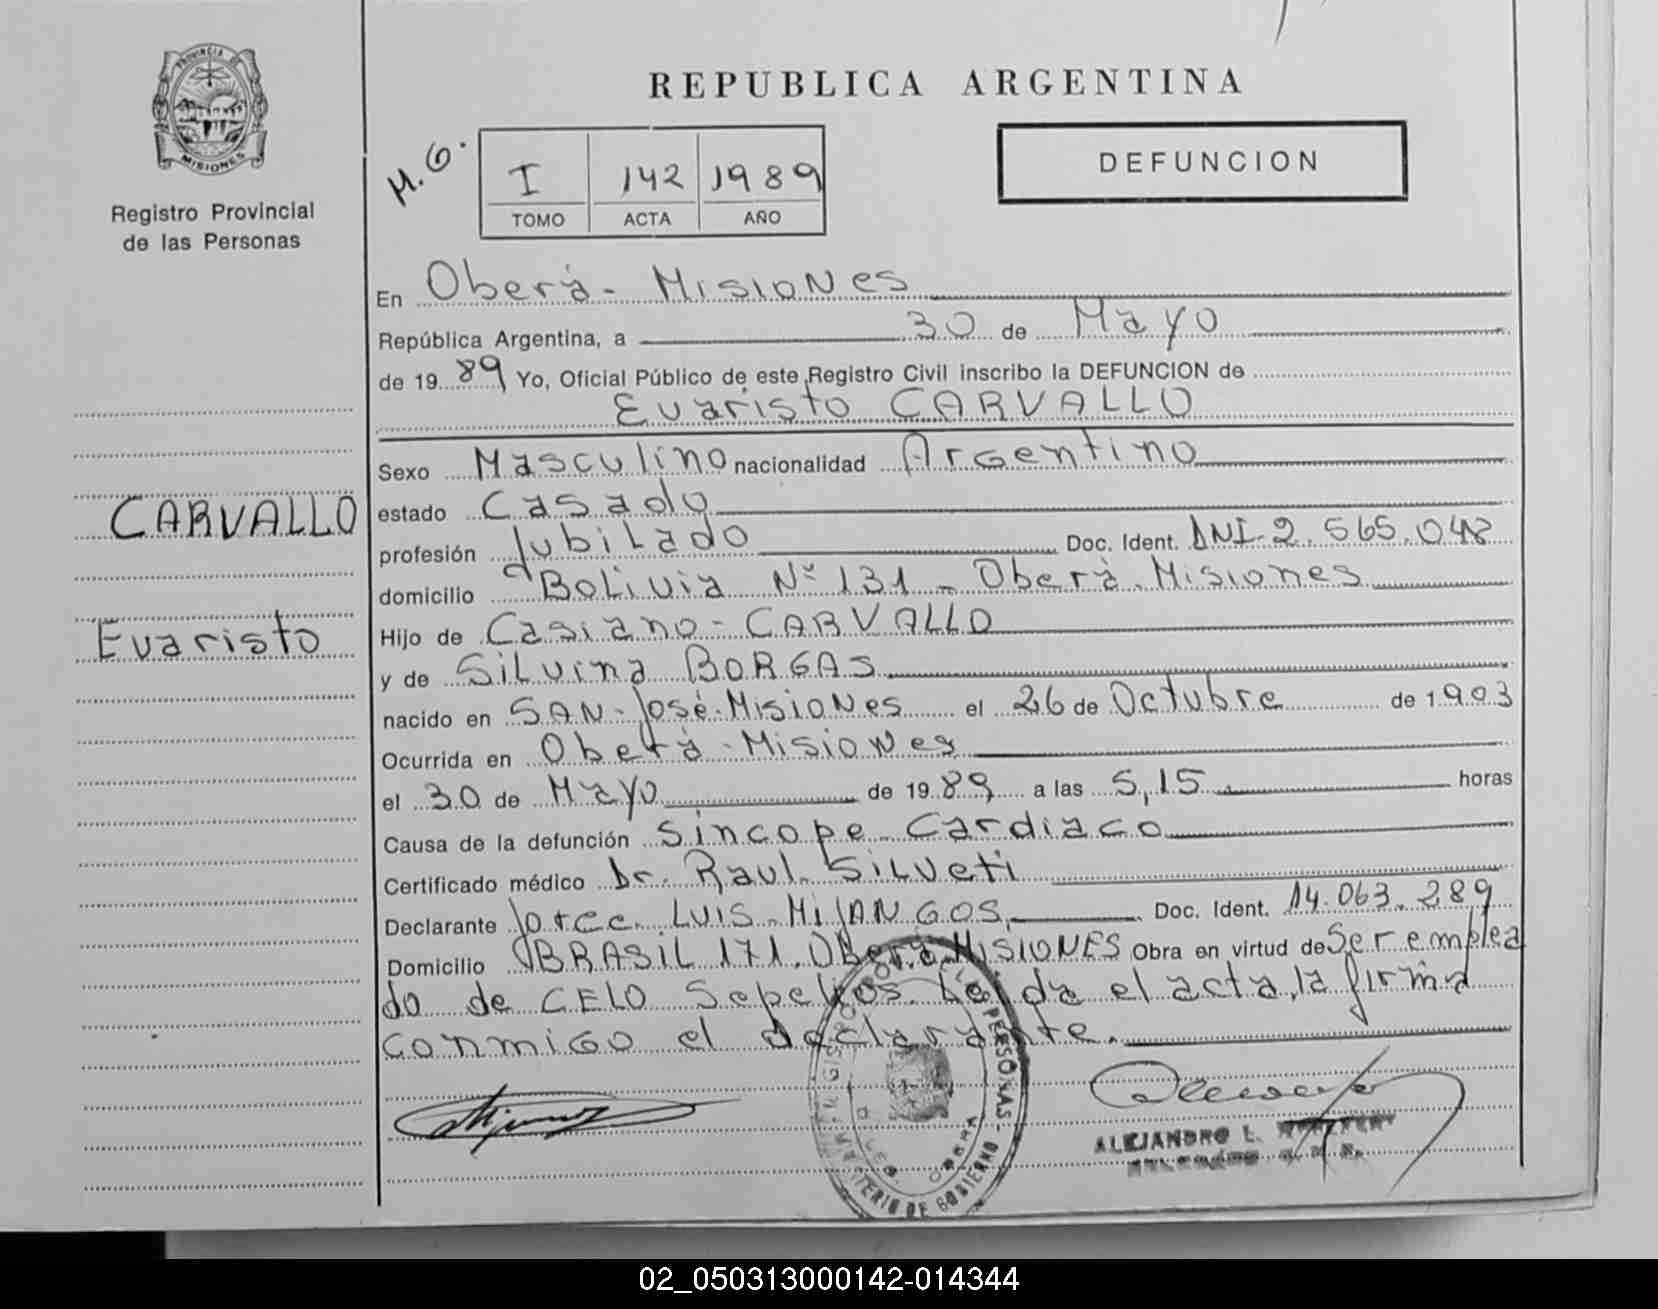 PROVINCIA DE
MISIONES
Registro Provincial
de las Personas
CARVALLO
Evaristo
REPUBLICA ARGENTINA
M.G.
I 142 1989
TOMO ACTA AÑO
DEFUNCION
En Oberá - Misiones
República Argentina, a 30 de Mayo
de 1989 Yo, Oficial Público de este Registro Civil inscribo la DEFUNCION de
Evaristo CARVALLO
Sexo Masculino nacionalidad Argentino
estado Casado
profesión Jubilado Doc. Ident. DNI 2.565.048
domicilio Bolivia Nº 131 - Oberá - Misiones
Hijo de Casiano - CARVALLO
y de Silvina BORGAS
nacido en SAN - José - Misiones el 26 de Octubre de 1903
Ocurrida en Oberá - Misiones
el 30 de Mayo de 1989 a las 5,15 horas
Causa de la defunción Sincope Cardiaco
Certificado médico Dr. Raul Silveti
Declarante Jorge LUIS MIJANGOS Doc. Ident. 14.063.289
Domicilio BRASIL 171. Oberá MISIONES Obra en virtud de Ser emplea
do de CELO Sepelios. Leída el acta, la firma
conmigo el declarante.
PERSONAS - MINISTERIO DE GOBIERNO
OBERA
ALEJANDRO L.
02_050313000142-014344